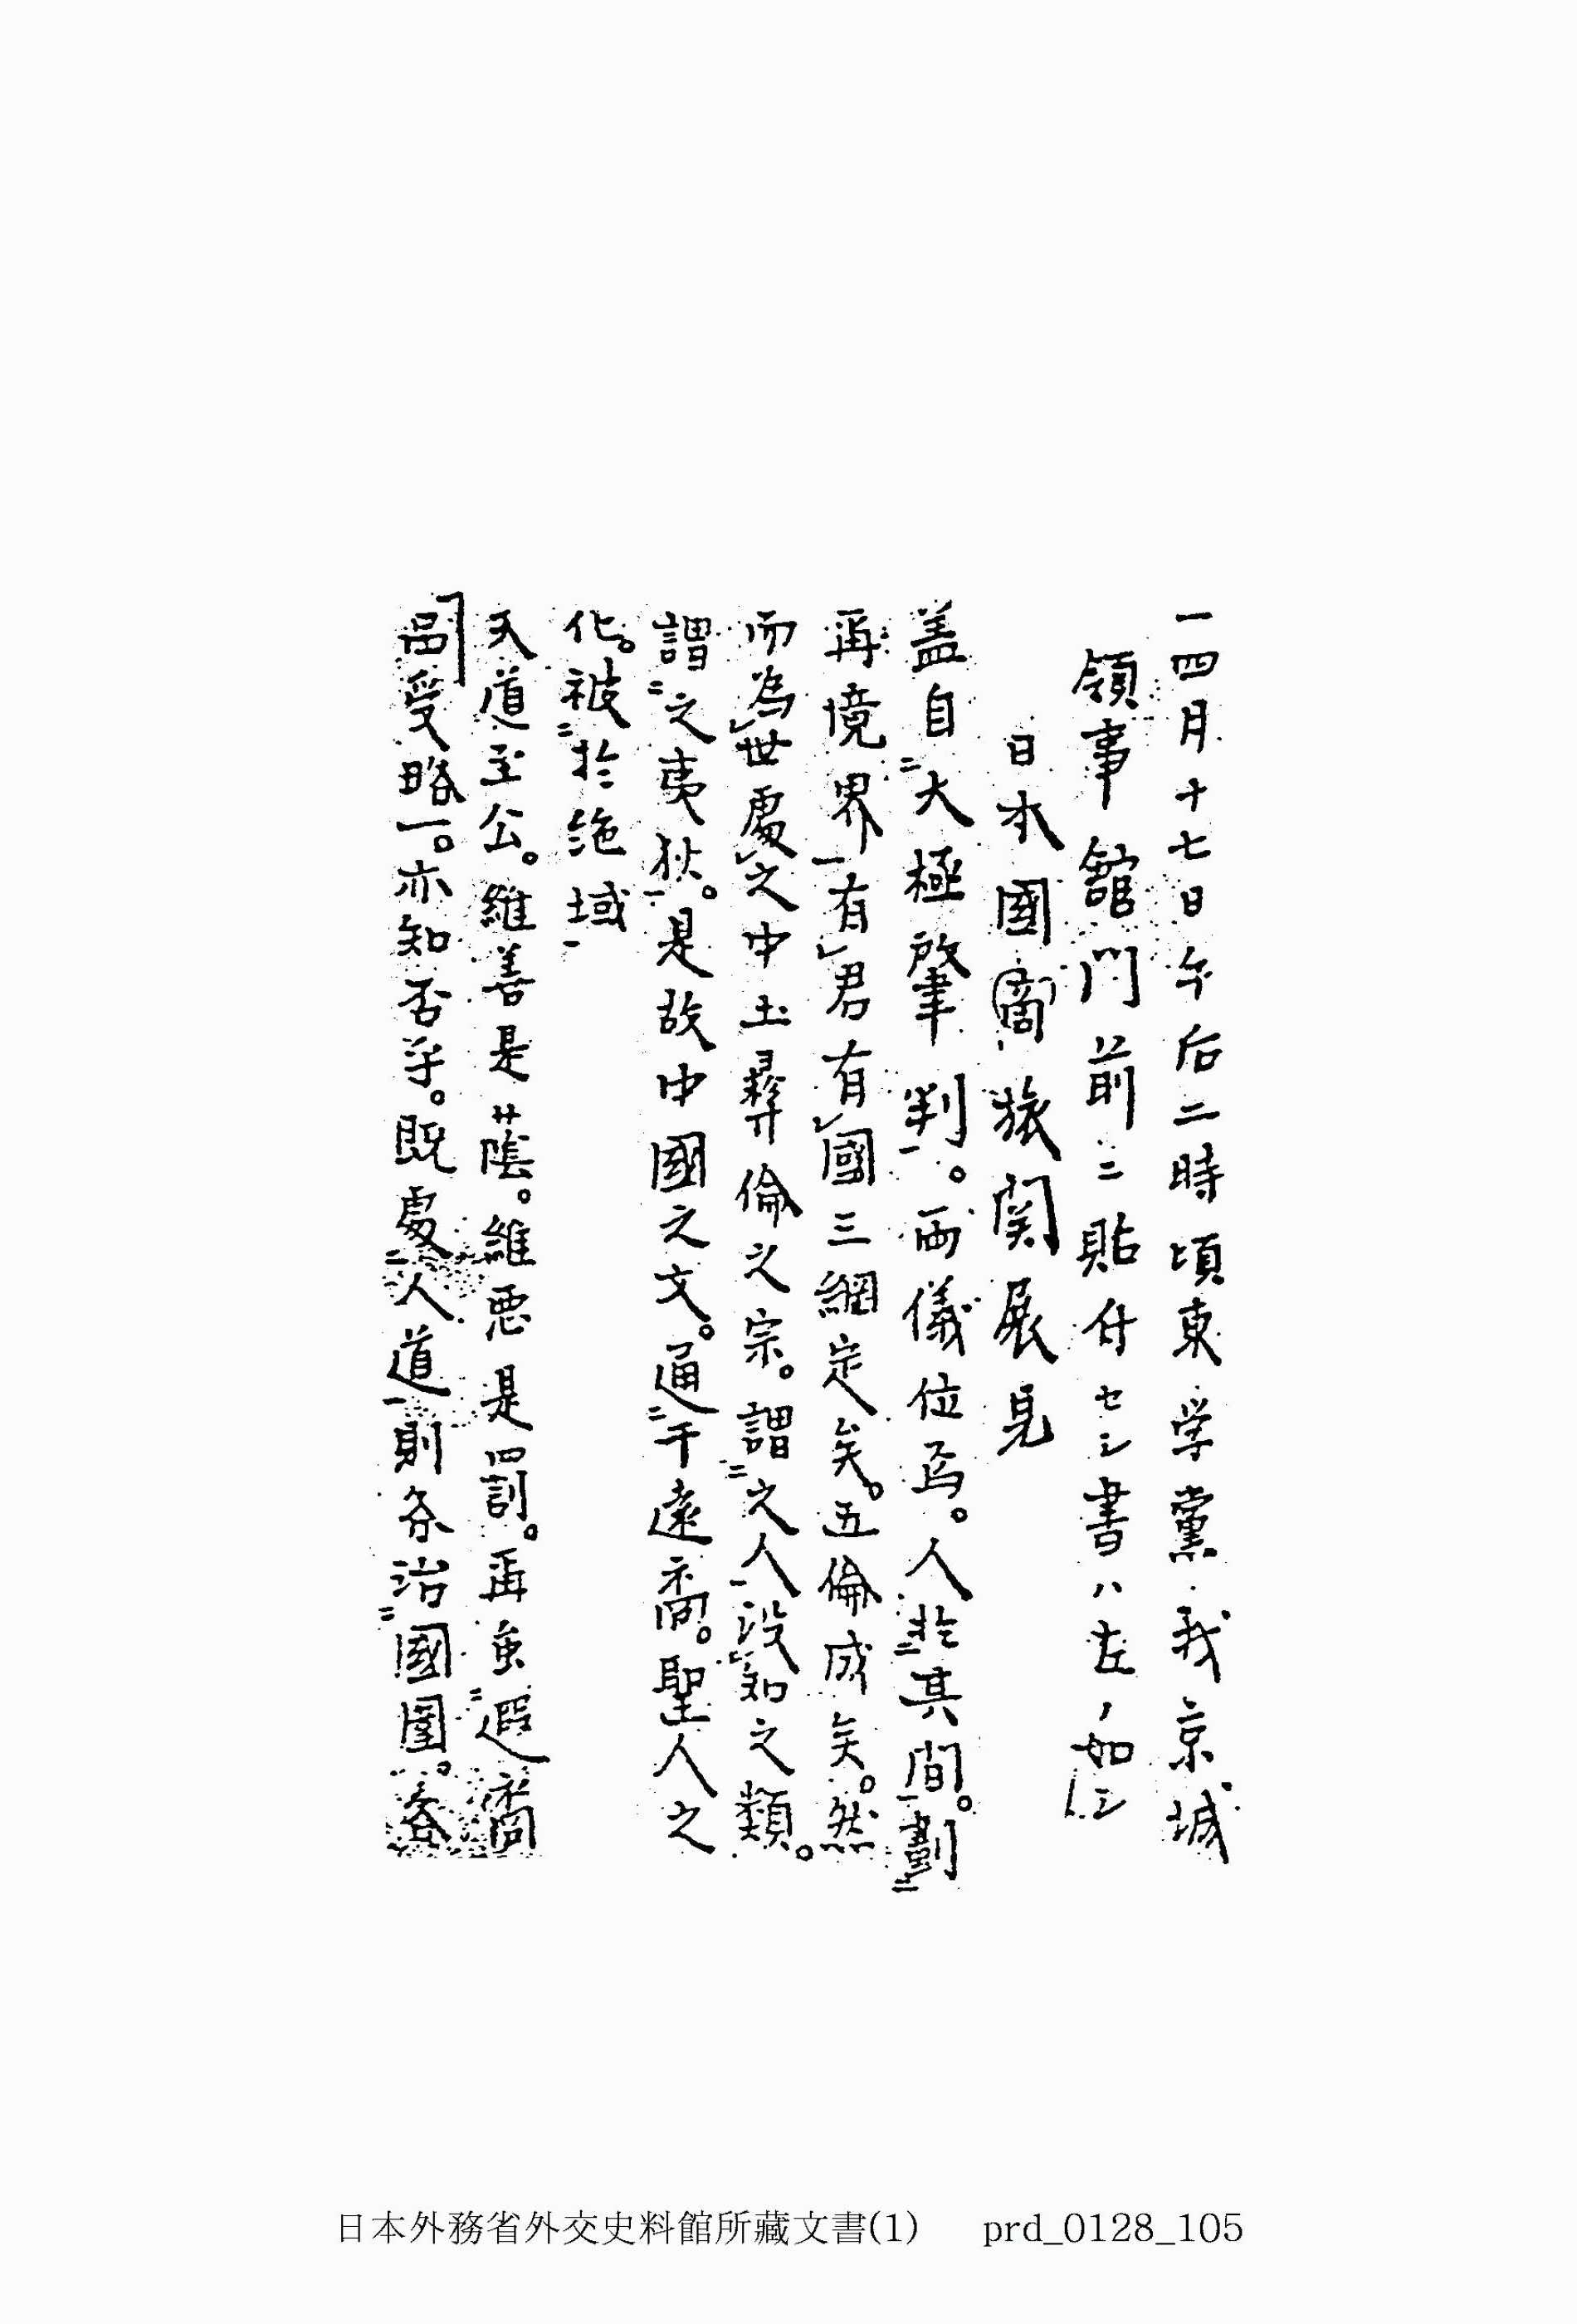 一四月十七日午后二時頃東学黨我京城
領事館門前ニ貼付セシ書ハ左ノ如シ
日本國商旅関展見
盖自大極肇判。両儀位焉。人於其間。劃
再境界有君有國三綱定矣。五倫成矣。然
而為世處之中土彛倫之宗。謂之人没知之類。
謂之夷狄。是故中國之文。通于遠裔。聖人之
化。被於絶域
天道至公。維善是蔭。維悪是罰。再虽遐裔
受略。亦知否乎。既處人道則各治國圖。各
日本外務省外交史料館所藏文書(1) prd_0128_105